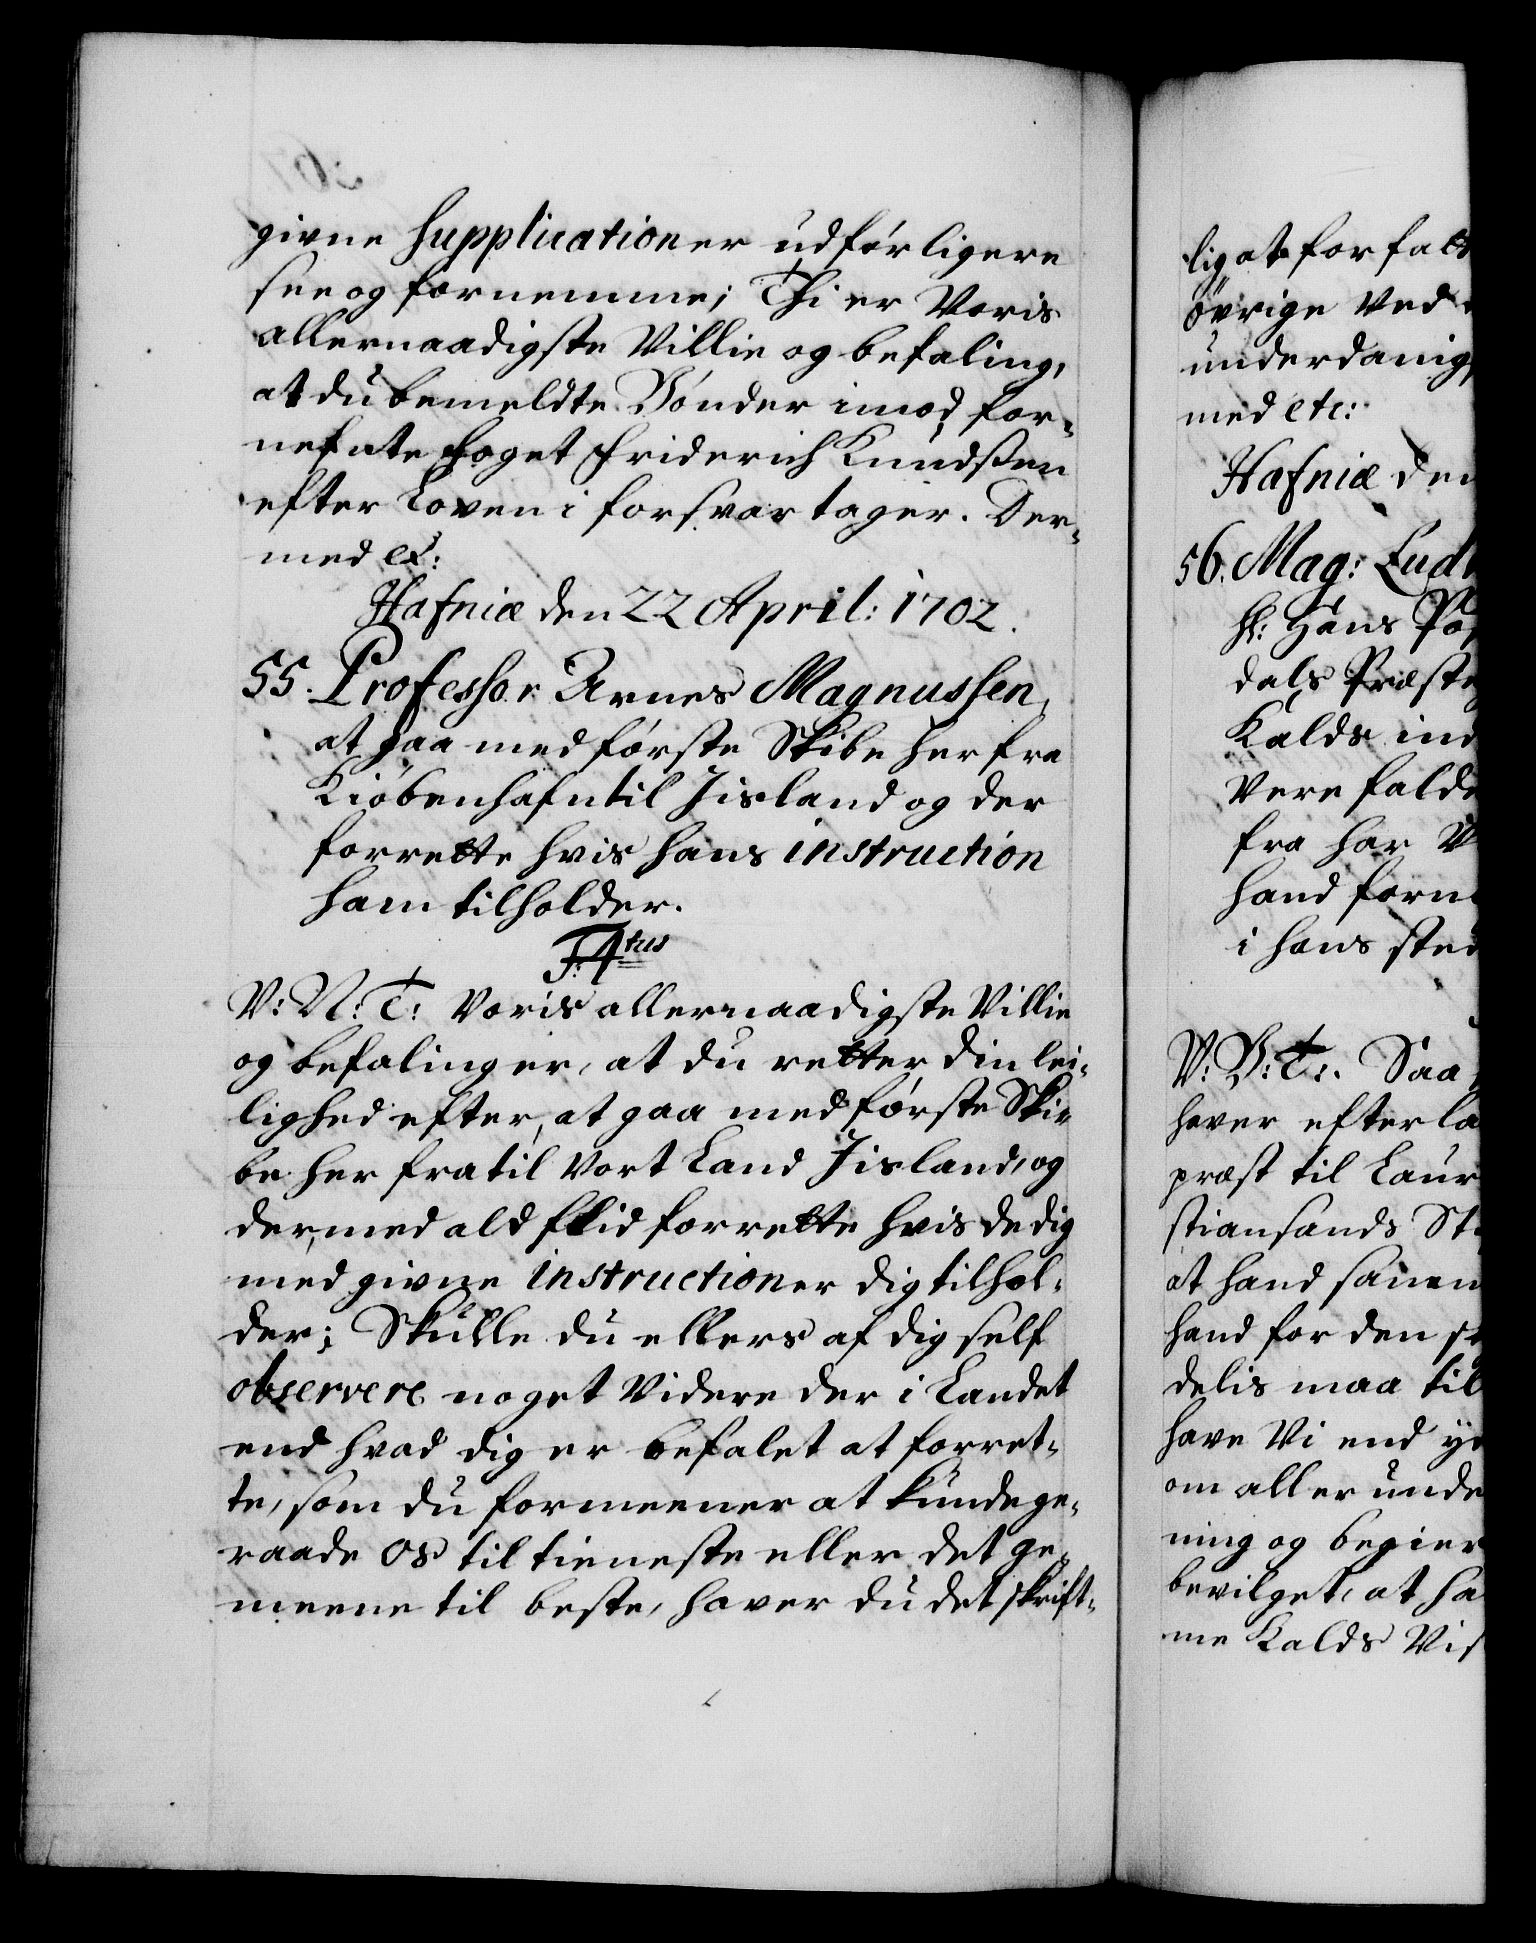 givne Supplicationer udførligere
see og fornemme; Thi er Voris
allernaadigste Villie og befaling,
at du bemeldte Bønder imod for-
nefnte foget Friderich Knudssen
efter Loven i forsvar tager. Der-
med etc:
Hafniæ den 22 April: 1702.
55. Professor Arnes Magnussen,
at gaa med første Skibe her fra
Kiøbenhafn til Jisland og der
forrette hvis hans instruction
ham tilholder.
F: 4tus
V: N: T: Voris allernaadigste Villie
og befaling er, at du retter din lei-
lighed efter, at gaa med første Ski-
be her fra til Vort Land Jisland, og
der med ald flid forrette hvis de dig
med givne instructioner dig tilhol-
der; Skulle du ellers af dig self
observere noget Videre der i Landet
end hvad dig er befalet at forret-
te, som du formeener at kunde ge-
raade os til tieneste eller det ge-
meene til beste, haver du det skrift-
lig at forfatt
øvrige Ved
underdanig
med etc:
Hafniæ den
56. Mag: Lud
Hr: Hans
dals Præste
Kalds ind
Vere falde
fra har V
hand forn
i hans sted
V: G: T:. Saa
haver efter la
præst til Laur
stiansands St
at hand samm
hand for den s
delis maa til
have Vi end
om aller unde
ning og begier
bevilget, at ha
me Kalds Vis